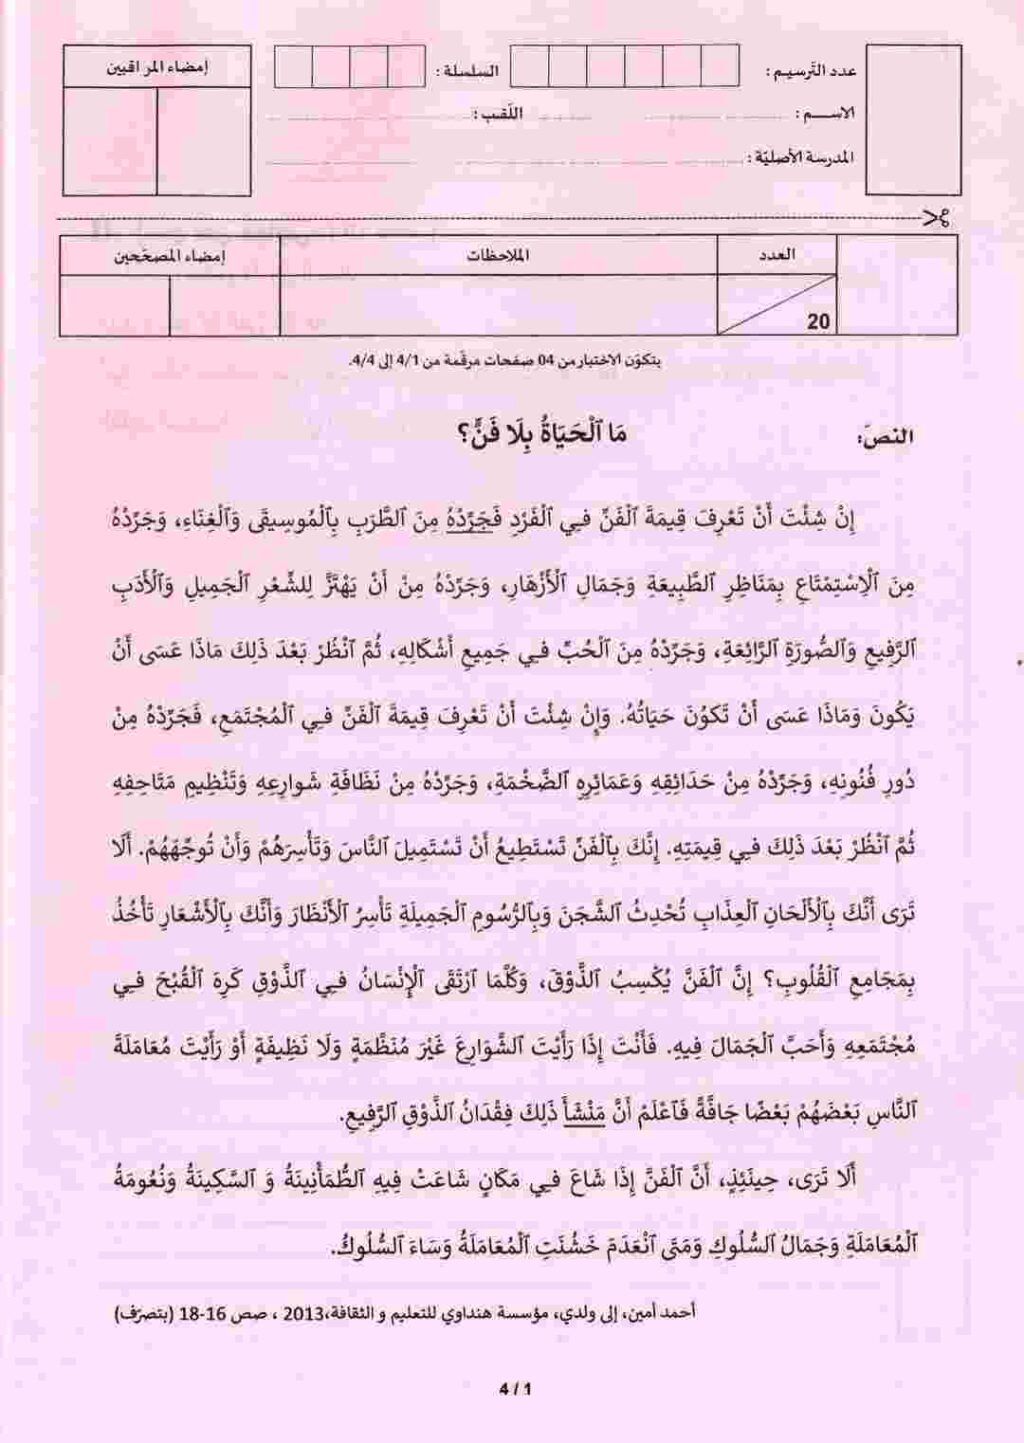 عدد الترسيم : السلسلة : إمضاء المراقبين
الاسم : اللقب :
المدرسة الأصلية :
العدد الملاحظات إمضاء المصححين
20
يتكوّن الاختبار من 04 صفحات مرقّمة من 4/1 إلى 4/4.
النصّ: مَا ٱلْحَيَاةُ بِلَا فَنٍّ؟
إِنْ شِئْتَ أَنْ تَعْرِفَ قِيمَةَ ٱلْفَنِّ فِي ٱلْفَرْدِ فَجَرِّدْهُ مِنَ ٱلطَّرَبِ بِٱلْمُوسِيقَى وَٱلْغِنَاءِ، وَجَرِّدْهُ
مِنَ ٱلْاِسْتِمْتَاعِ بِمَنَاظِرِ ٱلطَّبِيعَةِ وَجَمَالِ ٱلْأَزْهَارِ، وَجَرِّدْهُ مِنْ أَنْ يَهْتَزَّ لِلشِّعْرِ ٱلْجَمِيلِ وَٱلْأَدَبِ
ٱلرَّفِيعِ وَٱلصُّورَةِ ٱلرَّائِعَةِ، وَجَرِّدْهُ مِنَ ٱلْحُبِّ فِي جَمِيعِ أَشْكَالِهِ، ثُمَّ ٱنْظُرْ بَعْدَ ذَلِكَ مَاذَا عَسَى أَنْ
يَكُونَ وَمَاذَا عَسَى أَنْ تَكُونَ حَيَاتُهُ. وَإِنْ شِئْتَ أَنْ تَعْرِفَ قِيمَةَ ٱلْفَنِّ فِي ٱلْمُجْتَمَعِ، فَجَرِّدْهُ مِنْ
دُورِ فُنُونِهِ، وَجَرِّدْهُ مِنْ حَدَائِقِهِ وَعَمَائِرِهِ ٱلضَّخْمَةِ، وَجَرِّدْهُ مِنْ نَظَافَةِ شَوارِعِهِ وَتَنْظِيمِ مَتَاحِفِهِ
ثُمَّ ٱنْظُرْ بَعْدَ ذَلِكَ فِي قِيمَتِهِ. إِنَّكَ بِٱلْفَنِّ تَسْتَطِيعُ أَنْ تَسْتَمِيلَ ٱلنَّاسَ وَتَأْسِرَهُمْ وَأَنْ تُوَجِّهَهُمْ. أَلَا
تَرَى أَنَّكَ بِٱلْأَلْحَانِ ٱلْعِذَابِ تُحْدِثُ ٱلشَّجَنَ وَبِٱلرُّسُومِ ٱلْجَمِيلَةِ تَأْسِرُ ٱلْأَنْظَارَ وَأَنَّكَ بِٱلْأَشْعَارِ تَأْخُذُ
بِمَجَامِعِ ٱلْقُلُوبِ؟ إِنَّ ٱلْفَنَّ يُكْسِبُ ٱلذَّوْقَ، وَكُلَّمَا ٱرْتَقَى ٱلْإِنْسَانُ فِي ٱلذَّوْقِ كَرِهَ ٱلْقُبْحَ فِي
مُجْتَمَعِهِ وَأَحَبَّ ٱلْجَمَالَ فِيهِ. فَأَنْتَ إِذَا رَأَيْتَ ٱلشَّوَارِعَ غَيْرَ مُنَظَّمَةٍ وَلَا نَظِيفَةٍ أَوْ رَأَيْتَ مُعَامَلَةَ
ٱلنَّاسِ بَعْضَهُمْ بَعْضًا جَافَّةً فَٱعْلَمْ أَنَّ مَنْشَأَ ذَلِكَ فِقْدَانُ ٱلذَّوْقِ ٱلرَّفِيعِ.
أَلَا تَرَى، حِينَئِذٍ، أَنَّ ٱلْفَنَّ إِذَا شَاعَ فِي مَكَانٍ شَاعَتْ فِيهِ ٱلطُّمَأْنِينَةُ وَ ٱلسَّكِينَةُ وَنُعُومَةُ
ٱلْمُعَامَلَةِ وَجَمَالُ ٱلسُّلُوكِ وَمَتَى ٱنْعَدَمَ خَشُنَتِ ٱلْمُعَامَلَةُ وَسَاءَ ٱلسُّلُوكُ.
أحمد أمين، إلى ولدي، مؤسسة هنداوي للتعليم و الثقافة،2013 ، صص 16-18 (بتصرّف)
4 / 1